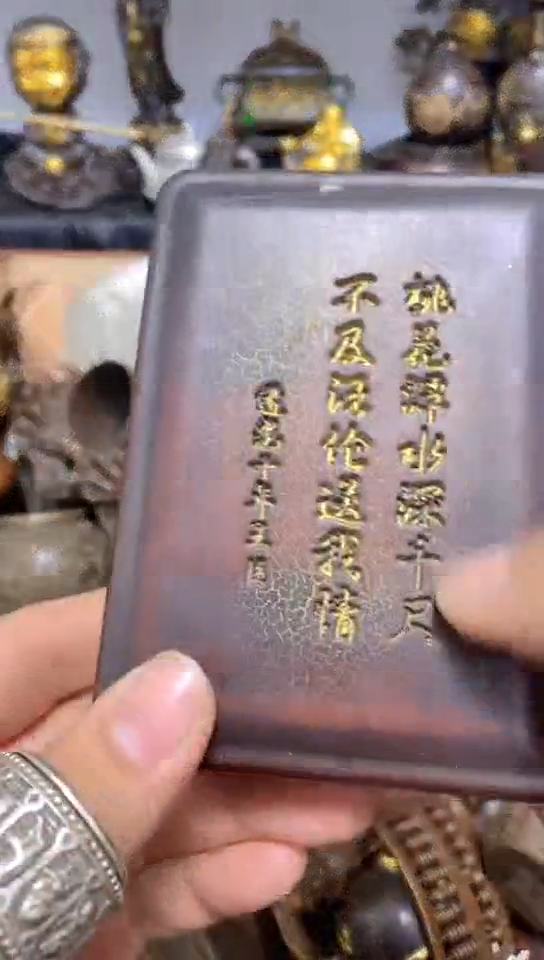 桃花潭水深千尺
不及汪伦送我情
道光十年王